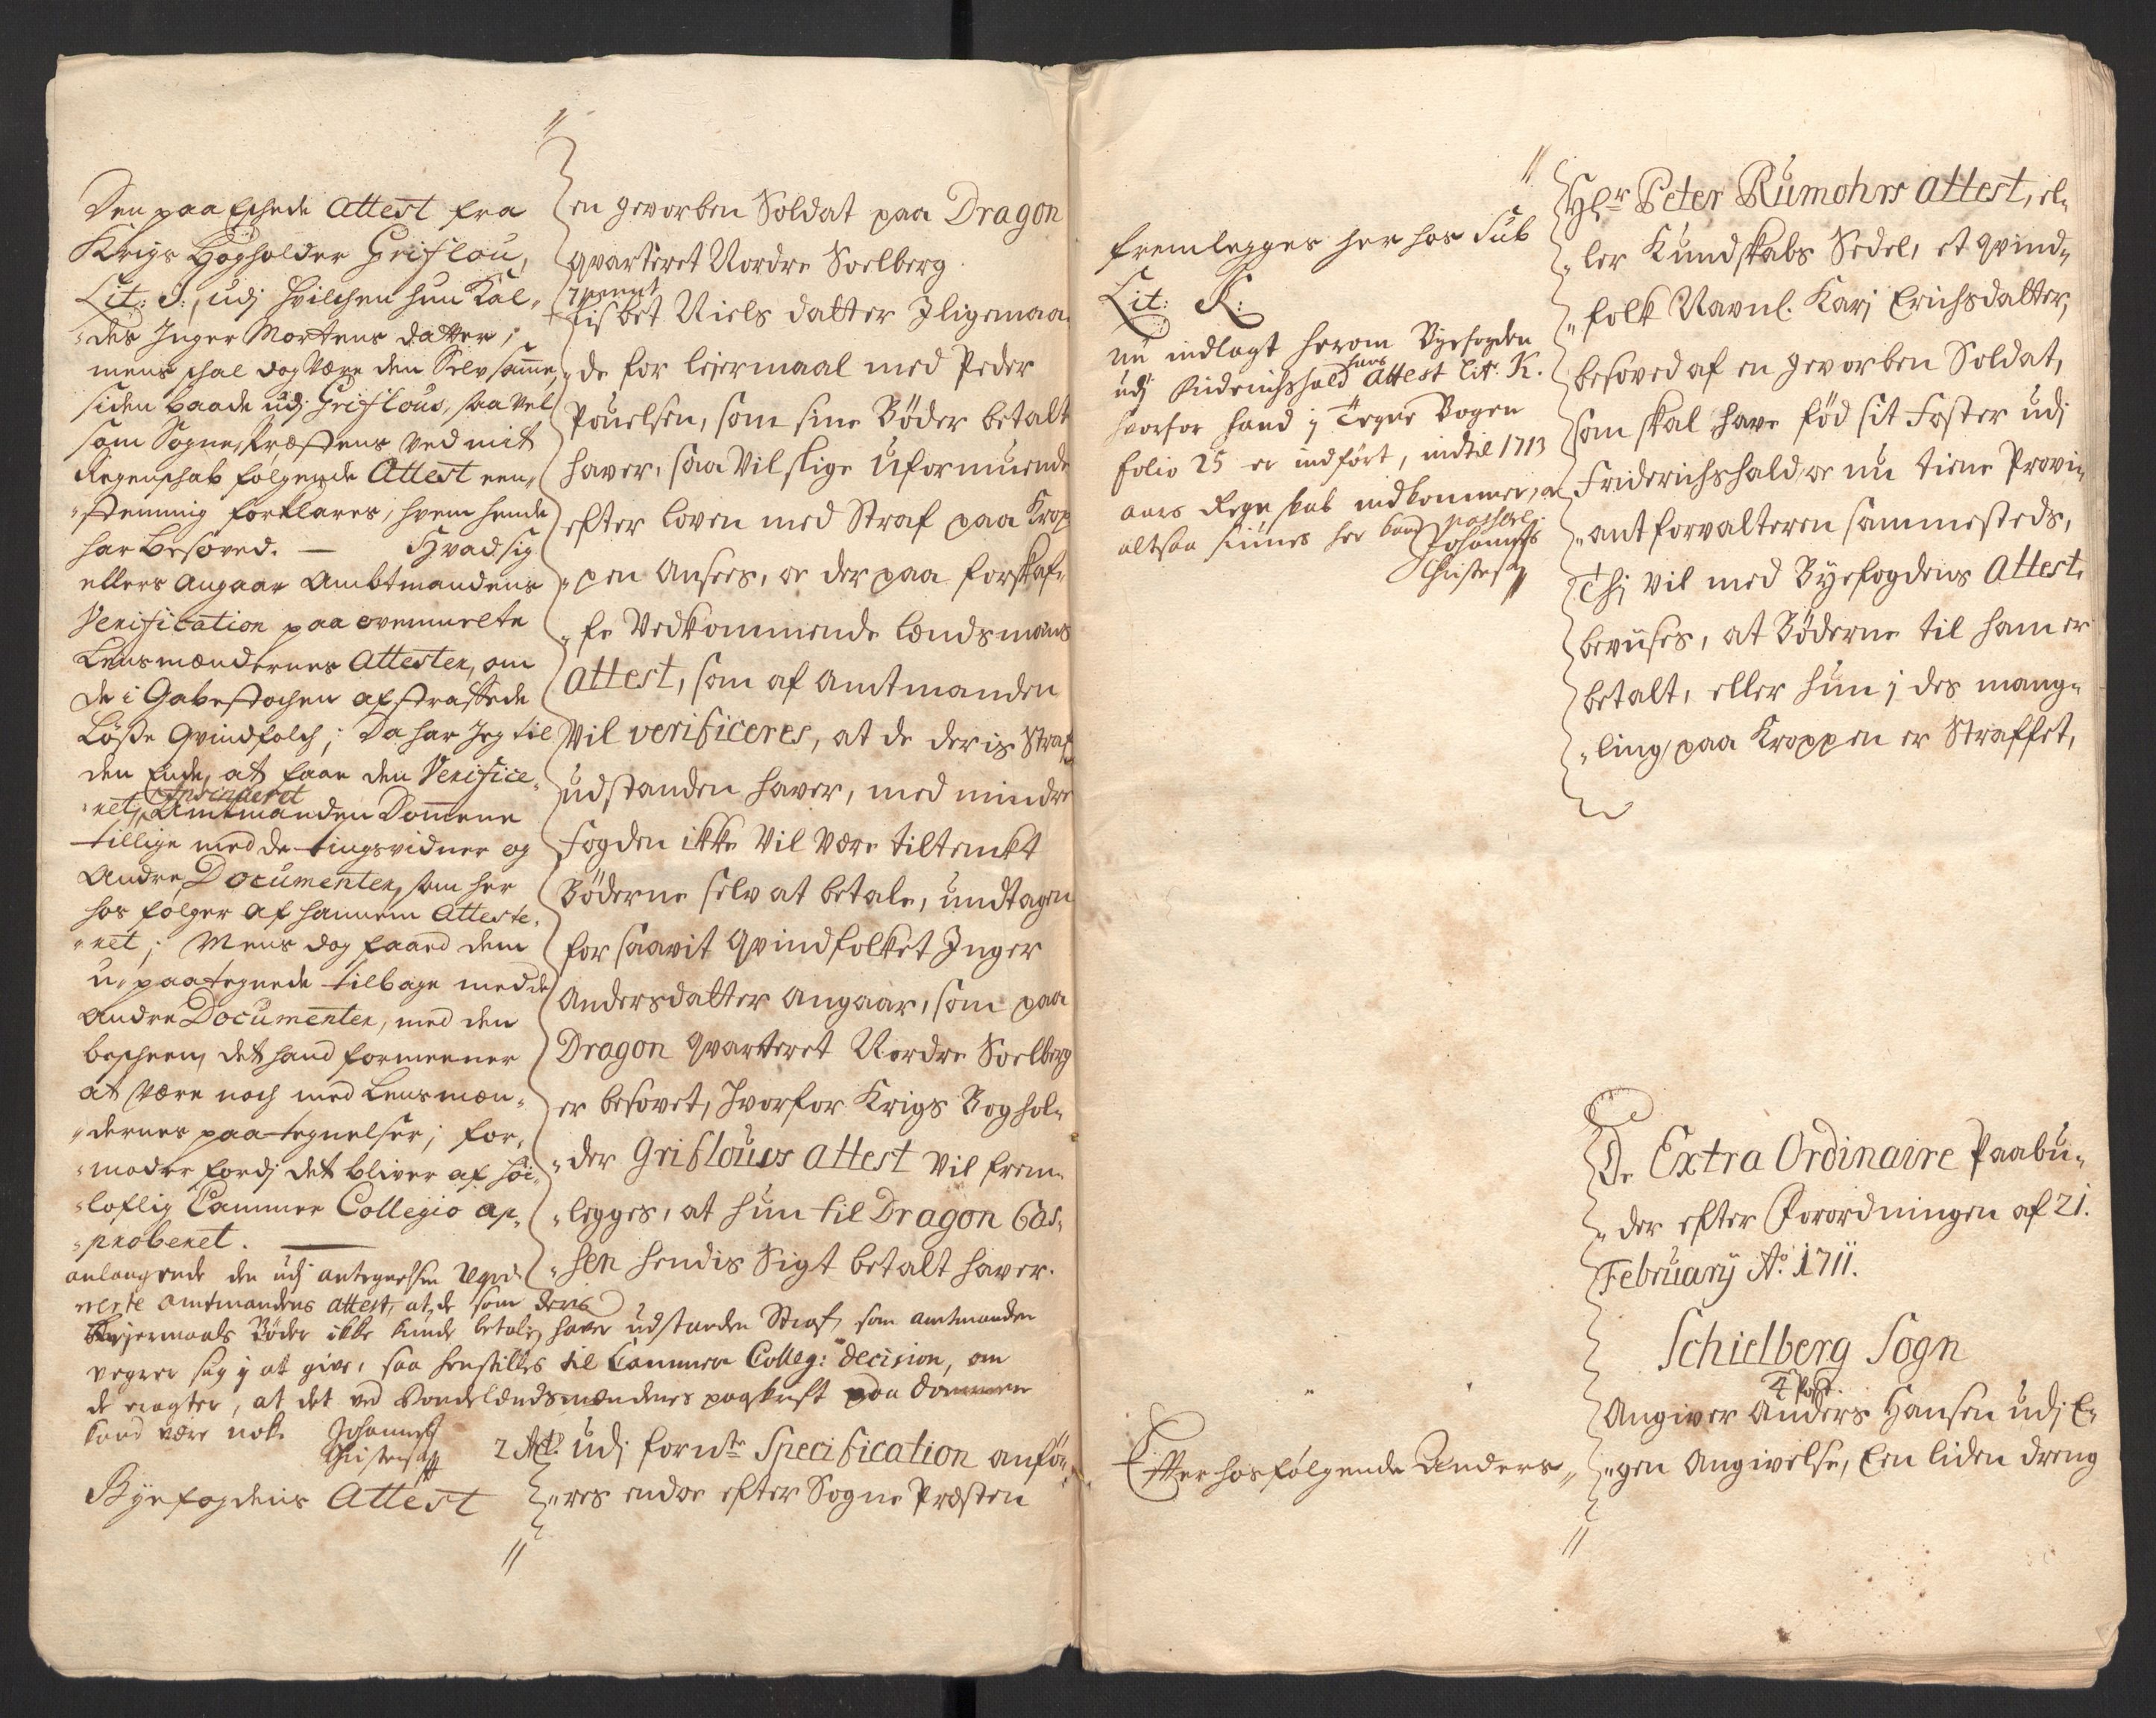 Den paa Eschede Attest fra
Krigs Bogholder Griflou,
Lit: I:, udj hvilchen hun Kal„
„des Inger Mortens datter;
mens schal dog Være den Selv same,
siden baade udj Griflous, saavel
som Sogne Præstens ved mit
Regenschab følgende Attest een„
„stemmig forklares, hvem hende
har besoved. — Hvad sig
ellers angaar Ambtmandens
Verification paa ovenmelte
Lensmændernes Attester, om
de i Gabestochen afstraffede
Løsse Qvindfolch; Da har Jeg til
den Ende, at faae den Verifice„
„ret, Insinueret Amtmanden Domene
tillige med de tingsvidner og
Andre Documenter, som her
hos følger af hannem Atteste„
„ret; Mens dog faaed dem
u„paategnede tilbage med de
Andre Documenter, med den
bescheen, det hand formeener
at være noch med Lensmæn„
„dernes paategnelser; for„
„moder fordj det bliver af høi„
„loflig Cammer Collegio ap„
„proberet. —
anlangende den udj antegnelsen
amtmandens attest, at de som deris
Leyermaals Bøder ikke kunde betale, haver udstanden Straf, som amtmanden
vegrer sig j at give, saa henstilles til Cammer Colleg: decision, om
de eragter, at det ved Bondelændsmændenes paaskrift paa dommene
kand være nok. Johannes
Christensen
Byefogdens Attest
en gevorben Soldat paa Dragon
qvarteret Nordre Soelberg
Lisbet Niels datter Iligemaa„
„de for lejermaal med Peder
Pouelsen, som sine Bøder betalt
haver, saa Vil slige Uformuende
efter loven med Straf paa Krop„
„pen ansees, oc der paa forskaf„
„fe Vedkommende lændsmans
attest, som af Amtmanden
Vil verificeres, at de deris Straf
udstanden haver, med mindre
Fogden ikke Vil være tiltenkt
Bøderne selv at betale, undtagen
for saavit qvindfolket Inger
Andersdatter angaar, som paa
Dragon qvarteret Nordre Soelberg
er besovet, hvorfor Krigs Boghol„
„der Griflous attest vil frem„
„legges, at hun til Dragon Cas„
„sen hendis Sigt betalt haver.
2 Act. udj fornte Specification anfø„
„res endoc efter Sogne Præsten
fremlegges her hos Sub
Lit: K:
nu indlagt herom Byefogden
udj Friderichshald hans Attest lit: K.
hvorfor hand j Tegne Bogen
folio 25 er indført, indtil 1713
aars Regnskab indkommer,
altsaa her kand passere.
Johannes
Christens
Hr Peter Rumohrs attest, el„
„ler Kundskabs Sedel, et qvind„
„folk Navnl. Karj Erichsdatter,
besoved af en gevorben Soldat,
som skal have fød sit Foster udj
Friderichshald oc nu tiene Provi„
„antforvalteren sammesteds,
Thj vil med Byefogdens Attest
beviises, at Bøderne til ham er
betalt, eller hun j des mang„
„ling paa Kroppen er Straffet,
De Extra Ordinaire Paabu„
„der efter Forordningen af 21.
February Ao. 1711.
Schielberg Sogn
4 Post.
Angiver Anders Hansen udj E„
„gen Angivelse, Een liden dreng
Efter hosfølgende Anders„